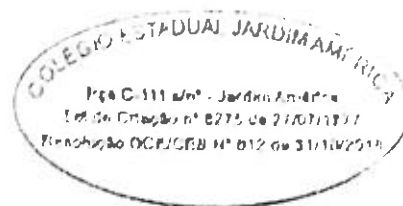 COLÉGIO ESTADUAL JARDIM AMÉRICA
Pça C-111 s/nº - Jardim América
Lei de Criação nº 8275 de 27/07/1977
Resolução CCE/CEB Nº 812 de 31/10/2018